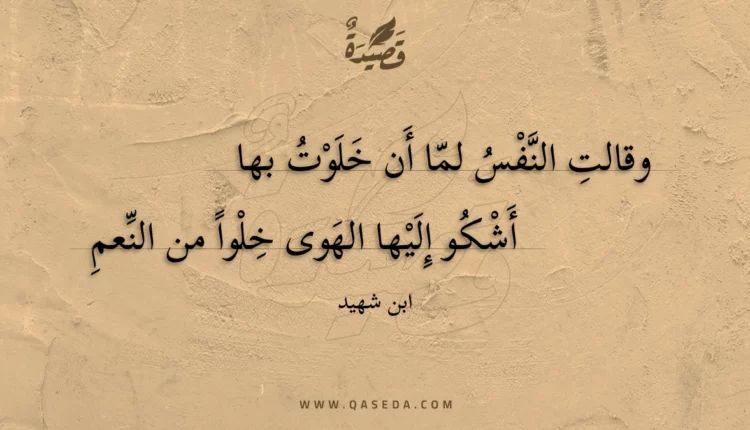 قَصِيْدَةٌ
وقالتِ النَّفْسُ لمّا أَن خَلَوْتُ بها
أَشْكُو إِلَيْها الهَوى خِلْواً من النِّعمِ
ابن شهيد
WWW.QASEDA.COM